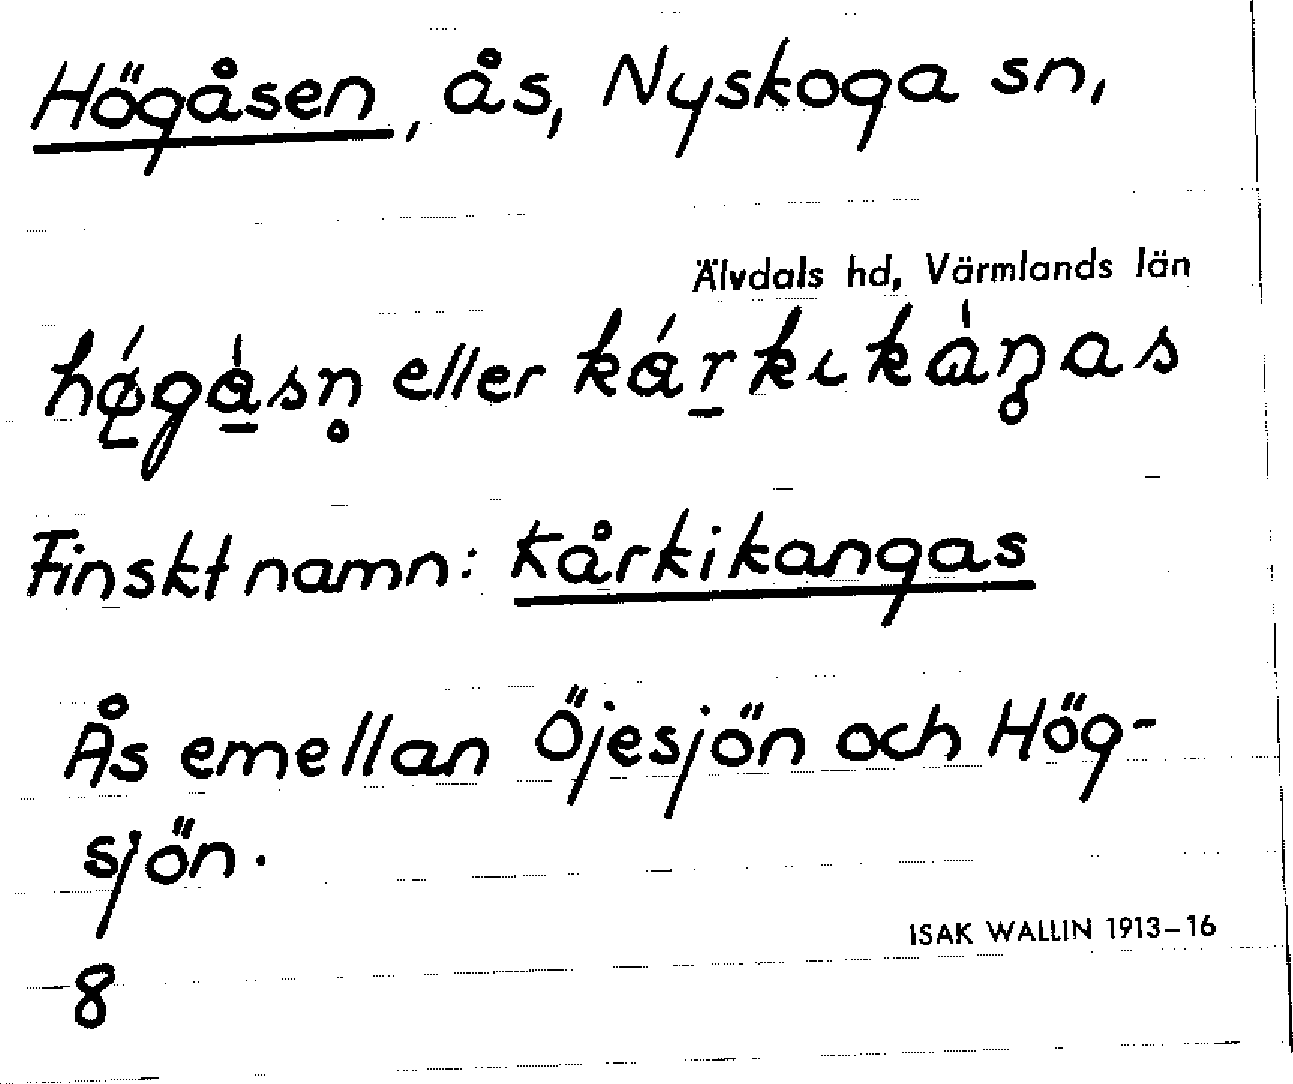 Högåsen, ås, Nyskoga sn,
Älvdals hd, Värmlands län
eller
Finskt namn: Kårkikangas
Ås emellan Öjesjön och Hög-
sjön.
ISAK WALLIN 1913–16
8